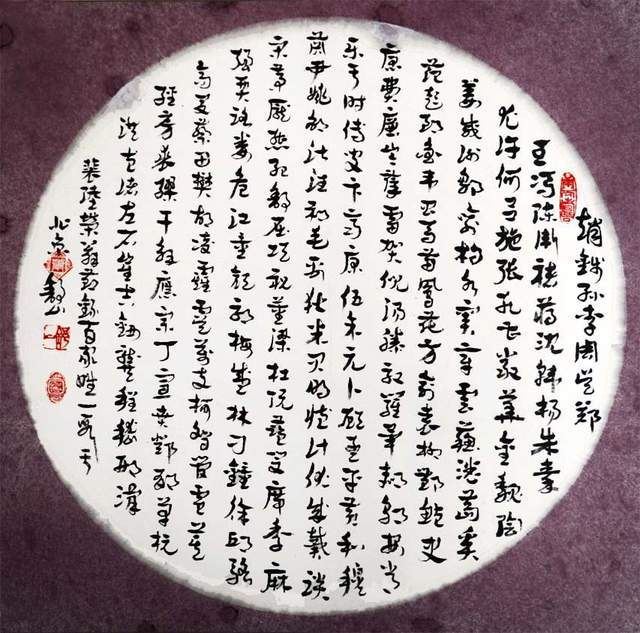 趙錢孫李周吳鄭
王馮陳衛褚蔣沈韓楊朱秦
尤許何呂施張孔曹嚴華金魏陶
姜戚謝鄒喻柏水竇章雲蘇潘葛奚
范彭郎魯韋昌馬苗鳳花方俞袁柳酆鮑史
唐費廉岑薛雷賀倪湯滕殷羅畢郝鄔安常
樂于時傅皮卞齊康伍余元卜顧孟平黃和穆
蕭尹姚邵湛汪祁毛禹狄米貝明臧計伏成戴談
宋茅龐熊紀舒屈項祝董梁杜阮藍閔席季麻
強賈路婁危江童顏郭梅盛林刁鍾徐邱駱
高夏蔡田樊胡凌霍虞萬支柯昝管盧莫
經房裘繆干解應宗丁宣賁鄧郁單杭
洪包諸左石崔吉鈕龔程嵇邢滑
裴陸榮翁荀錄百家姓一段于
北京